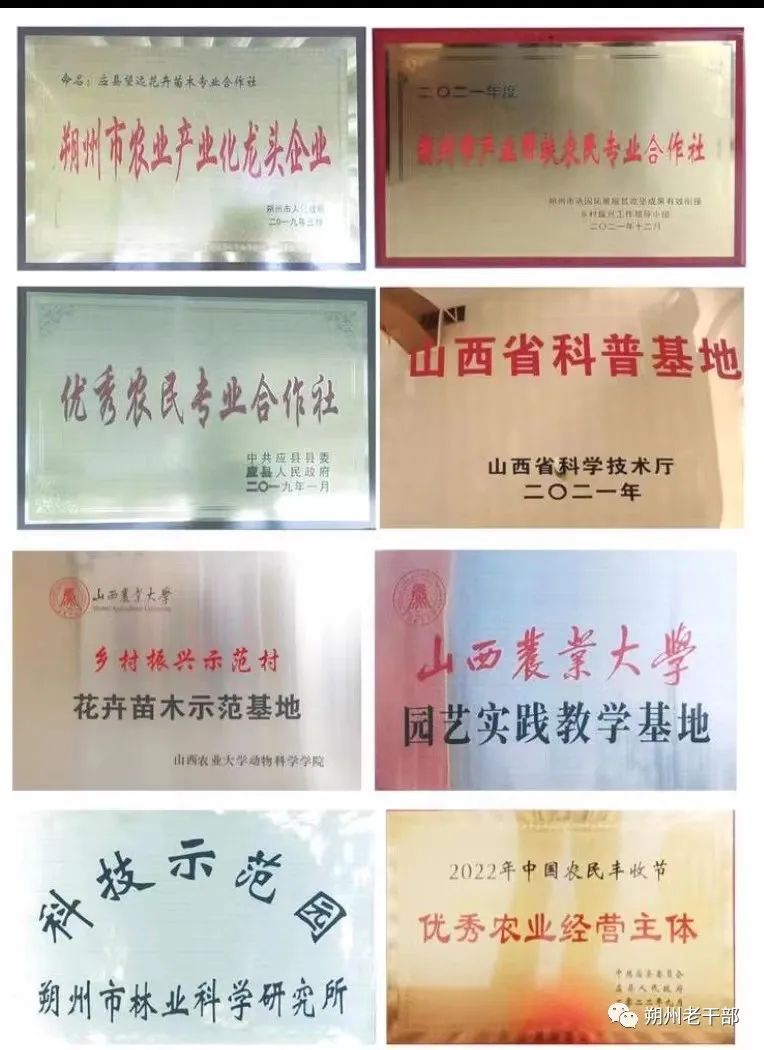 命名：应县望远花卉苗木专业合作社
朔州市农业产业化龙头企业
朔州市人民政府
二〇一九年三月
二〇二一年度
朔州市产业帮扶农民专业合作社
朔州市巩固拓展脱贫攻坚成果有效衔接
乡村振兴工作领导小组
二〇二一年十二月
优秀农民专业合作社
中共应县县委
应县人民政府
二〇一九年一月
山西省科普基地
山西省科学技术厅
二〇二一年
山西農業大學
Shanxi Agricultural University
乡村振兴示范村
花卉苗木示范基地
山西农业大学动物科学学院
山西農業大學
园艺实践教学基地
科技示范园
朔州市林业科学研究所
2022年中国农民丰收节
优秀农业经营主体
中共应县委员会
应县人民政府
二零二二年九月
朔州老干部